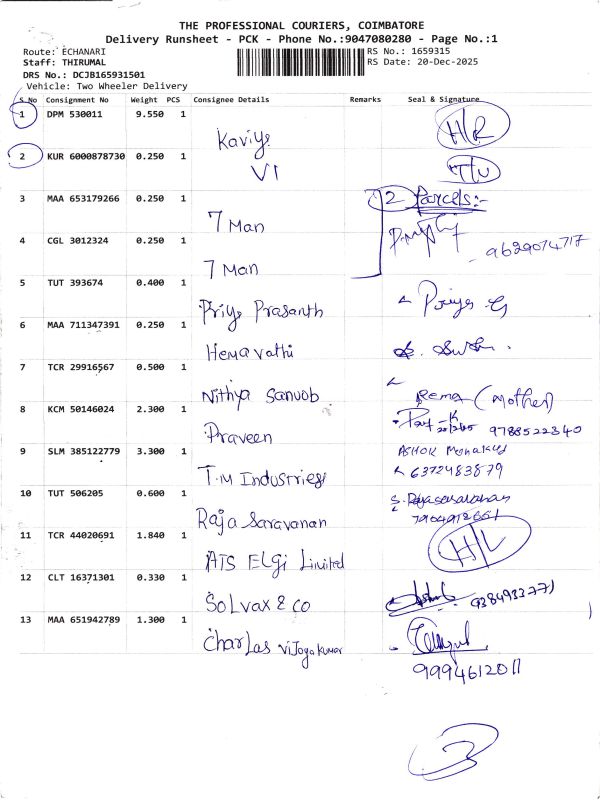 THE PROFESSIONAL COURIERS, COIMBATORE
Delivery Runsheet - PCK - Phone No.:9047080280 - Page No.:1
Route: ECHANARI RS No.: 1659315
Staff: THIRUMAL RS Date: 20-Dec-2025
DRS No.: DCJB165931501
Vehicle: Two Wheeler Delivery
S.No Consignment No Weight PCS Consignee Details Remarks Seal & Signature
1 DPM 530011 9.550 1 Kaviya H/R
2 KUR 6000878730 0.250 1 VI
3 MAA 653179266 0.250 1 7 Man 2 Parcels:-
4 CGL 3012324 0.250 1 7 Man 9629074717
5 TUT 393674 0.400 1 Priya Prasanth Priya G
6 MAA 711347391 0.250 1 Hemavathi
7 TCR 29916567 0.500 1 Nithya Sanuob Rema (Mother)
8 KCM 50146024 2.300 1 Praveen 9788522340
9 SLM 385122779 3.300 1 T.M Industries ASHOK 6372483879
10 TUT 506205 0.600 1 Raja Saravanan S. Rajasaravanan
11 TCR 44020691 1.840 1 ATS ELgi Limited H/L
12 CLT 16371301 0.330 1 SoLvax & co
13 MAA 651942789 1.300 1 CharLas Vijoyakumar
9994612011